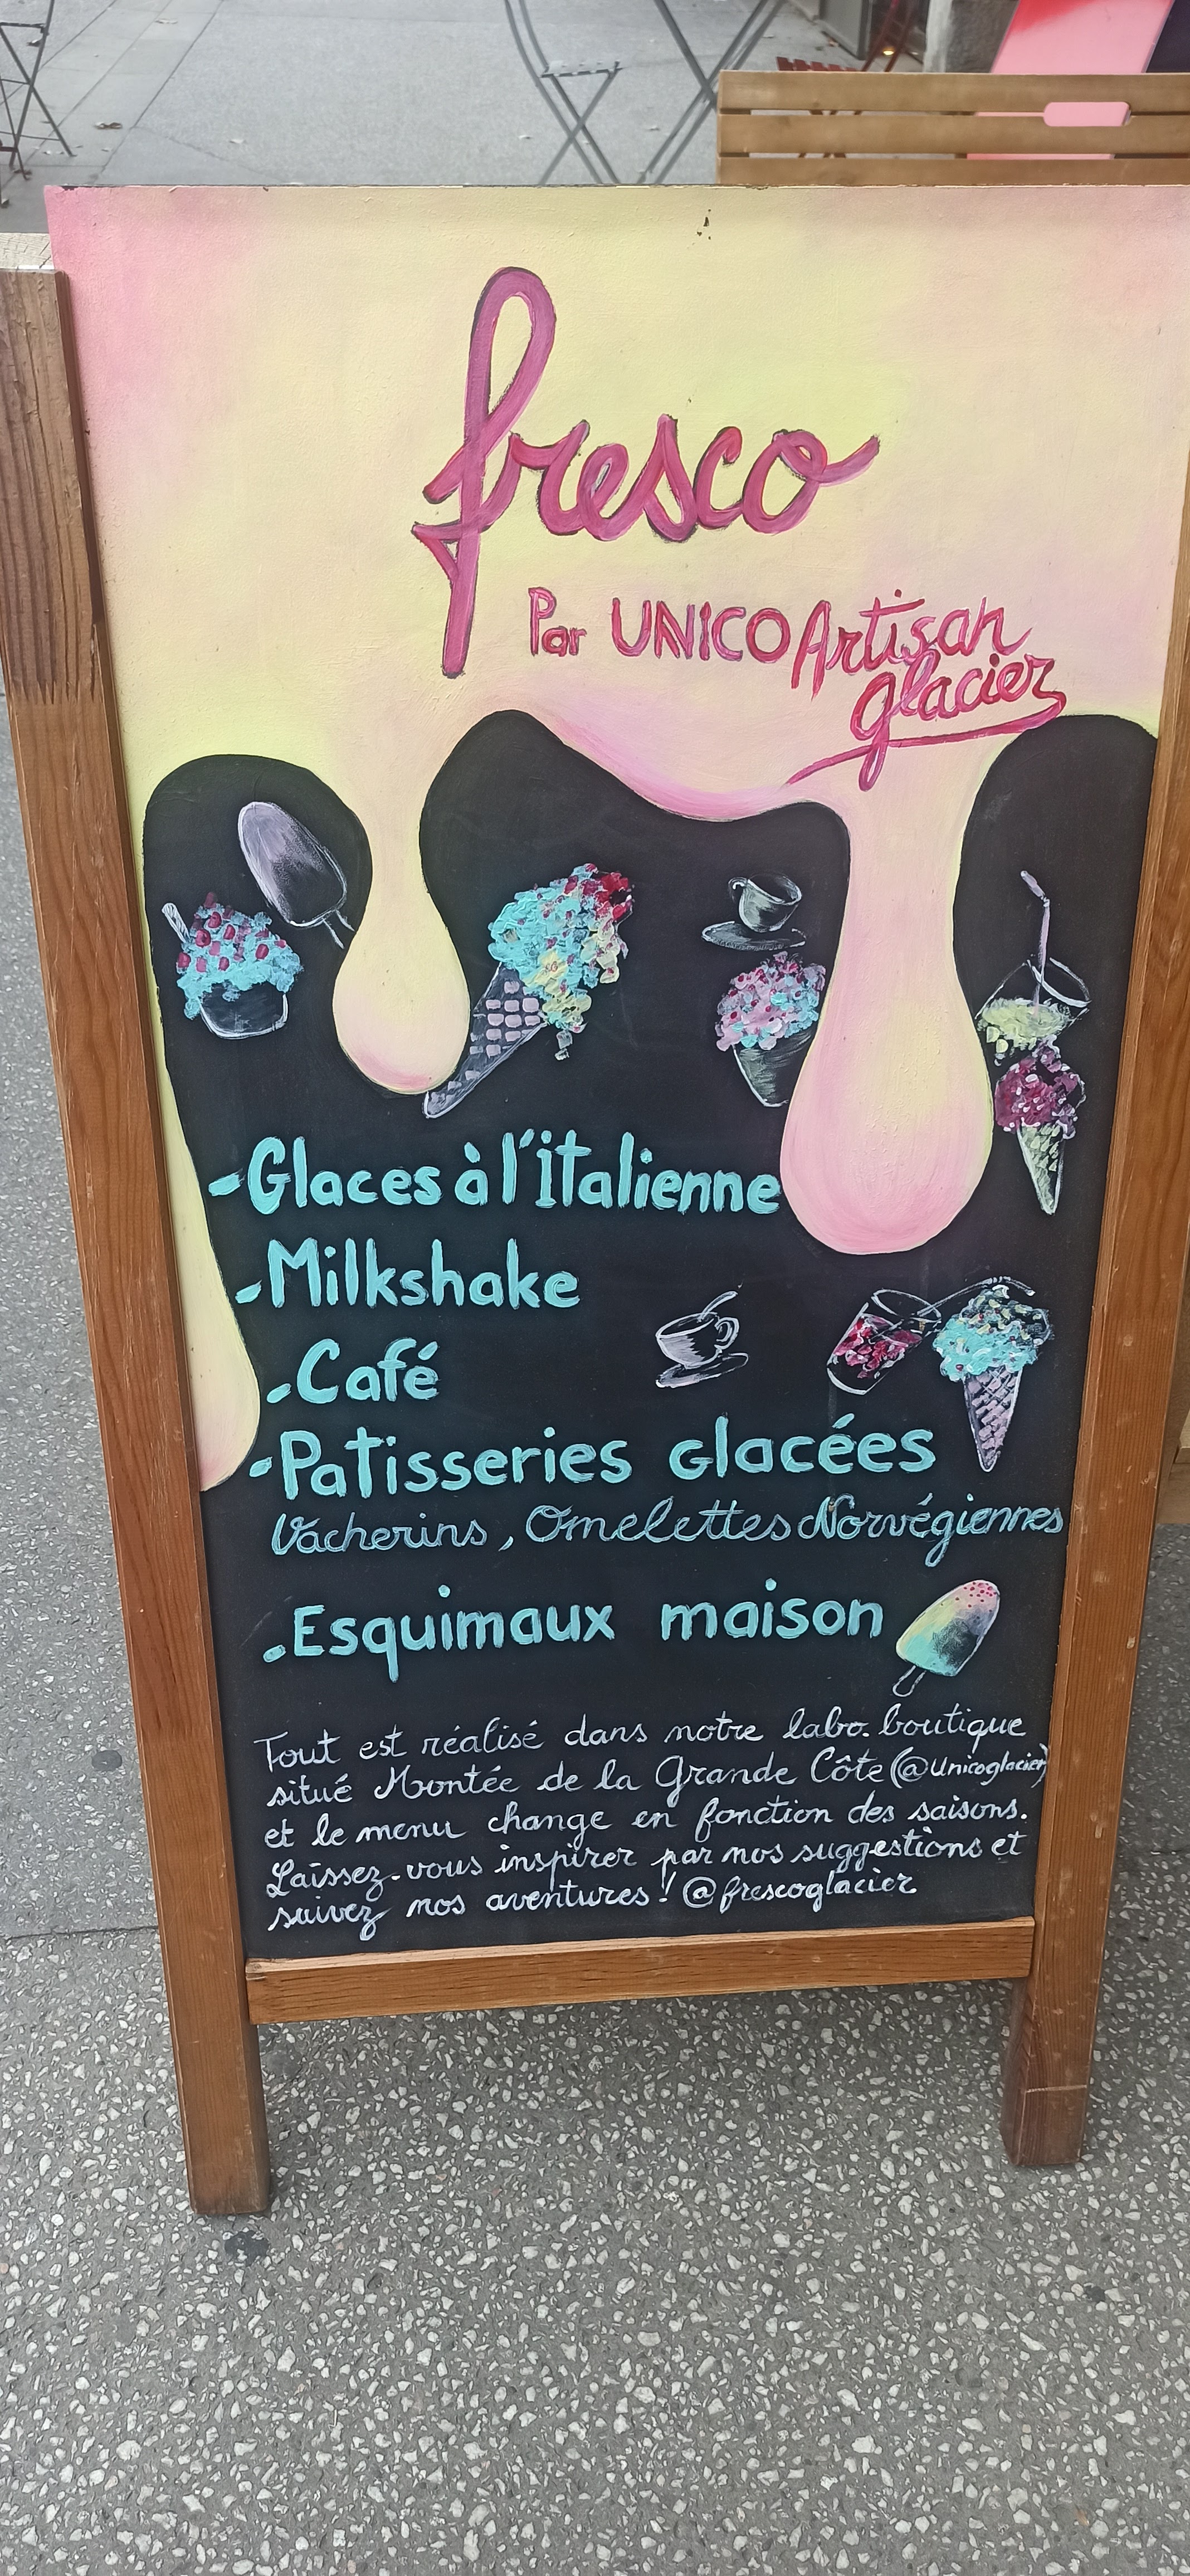 fresco
Par UNICO Artisan
glacier
- Glaces à l'italienne
- Milkshake
- Café
- Patisseries Glacées
Vacherins, Omelettes Norvégiennes
- Esquimaux maison
Tout est réalisé dans notre labo-boutique
situé Montée de la Grande Côte (@unicoglacier)
et le menu change en fonction des saisons.
Laissez-vous inspirer par nos suggestions et
suivez nos aventures ! @frescoglacier